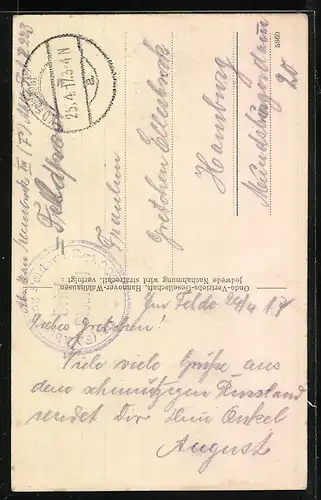 Feldpost
25.4.17.3-4 N
a.
Fräulein
Gretchen Ellerbrock
Hamburg
Mundsburgerdamm
20
5860
Ondo-Vertriebs-Gesellschaft, Hannover-Waldhausen
jedwede Nachahmung wird strafrechtl. verfolgt
Im Felde 24/4 17
Liebes Gretchen!
Viele viele Grüße aus
dem schmutzigen Russland
sendet Dir Dein Onkel
August